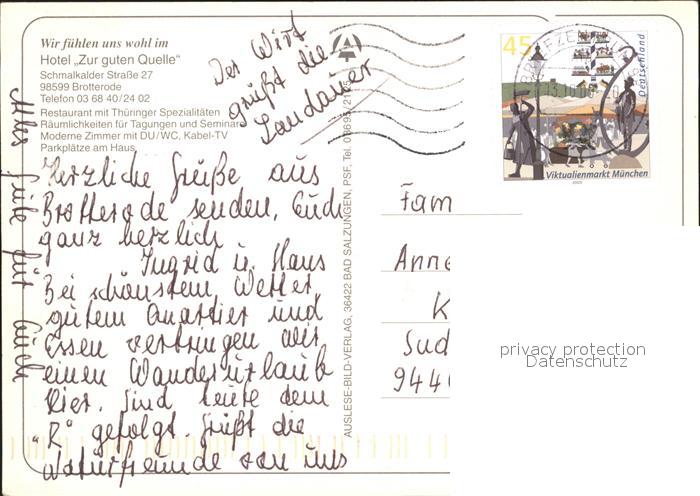 Wir fühlen uns wohl im
Hotel „Zur guten Quelle“
Schmalkalder Straße 27
98599 Brotterode
Telefon 03 68 40/24 02
Restaurant mit Thüringer Spezialitäten
Räumlichkeiten für Tagungen und Seminare
Moderne Zimmer mit DU/WC, Kabel-TV
Parkplätze am Haus
Der Wirt
grüßt die
Landauer
Herzliche Grüße aus
Brotterode senden Euch
ganz herzlich
Ingrid u. Hans
Bei schönstem Wetter,
gutem Quartier und
Essen verbringen wir
einen Wanderurlaub
hier. Sind heute dem
"R" gefolgt. Grüßt die
Naturfreunde von uns
Alles Gute für Euch
AUSLESE-BILD-VERLAG, 36422 BAD SALZUNGEN, PSF, Tel.
45
Deutschland
Viktualienmarkt München
2003
BRIEFZE
Fam
Anne
K
Sud
944
privacy protection
Datenschutz